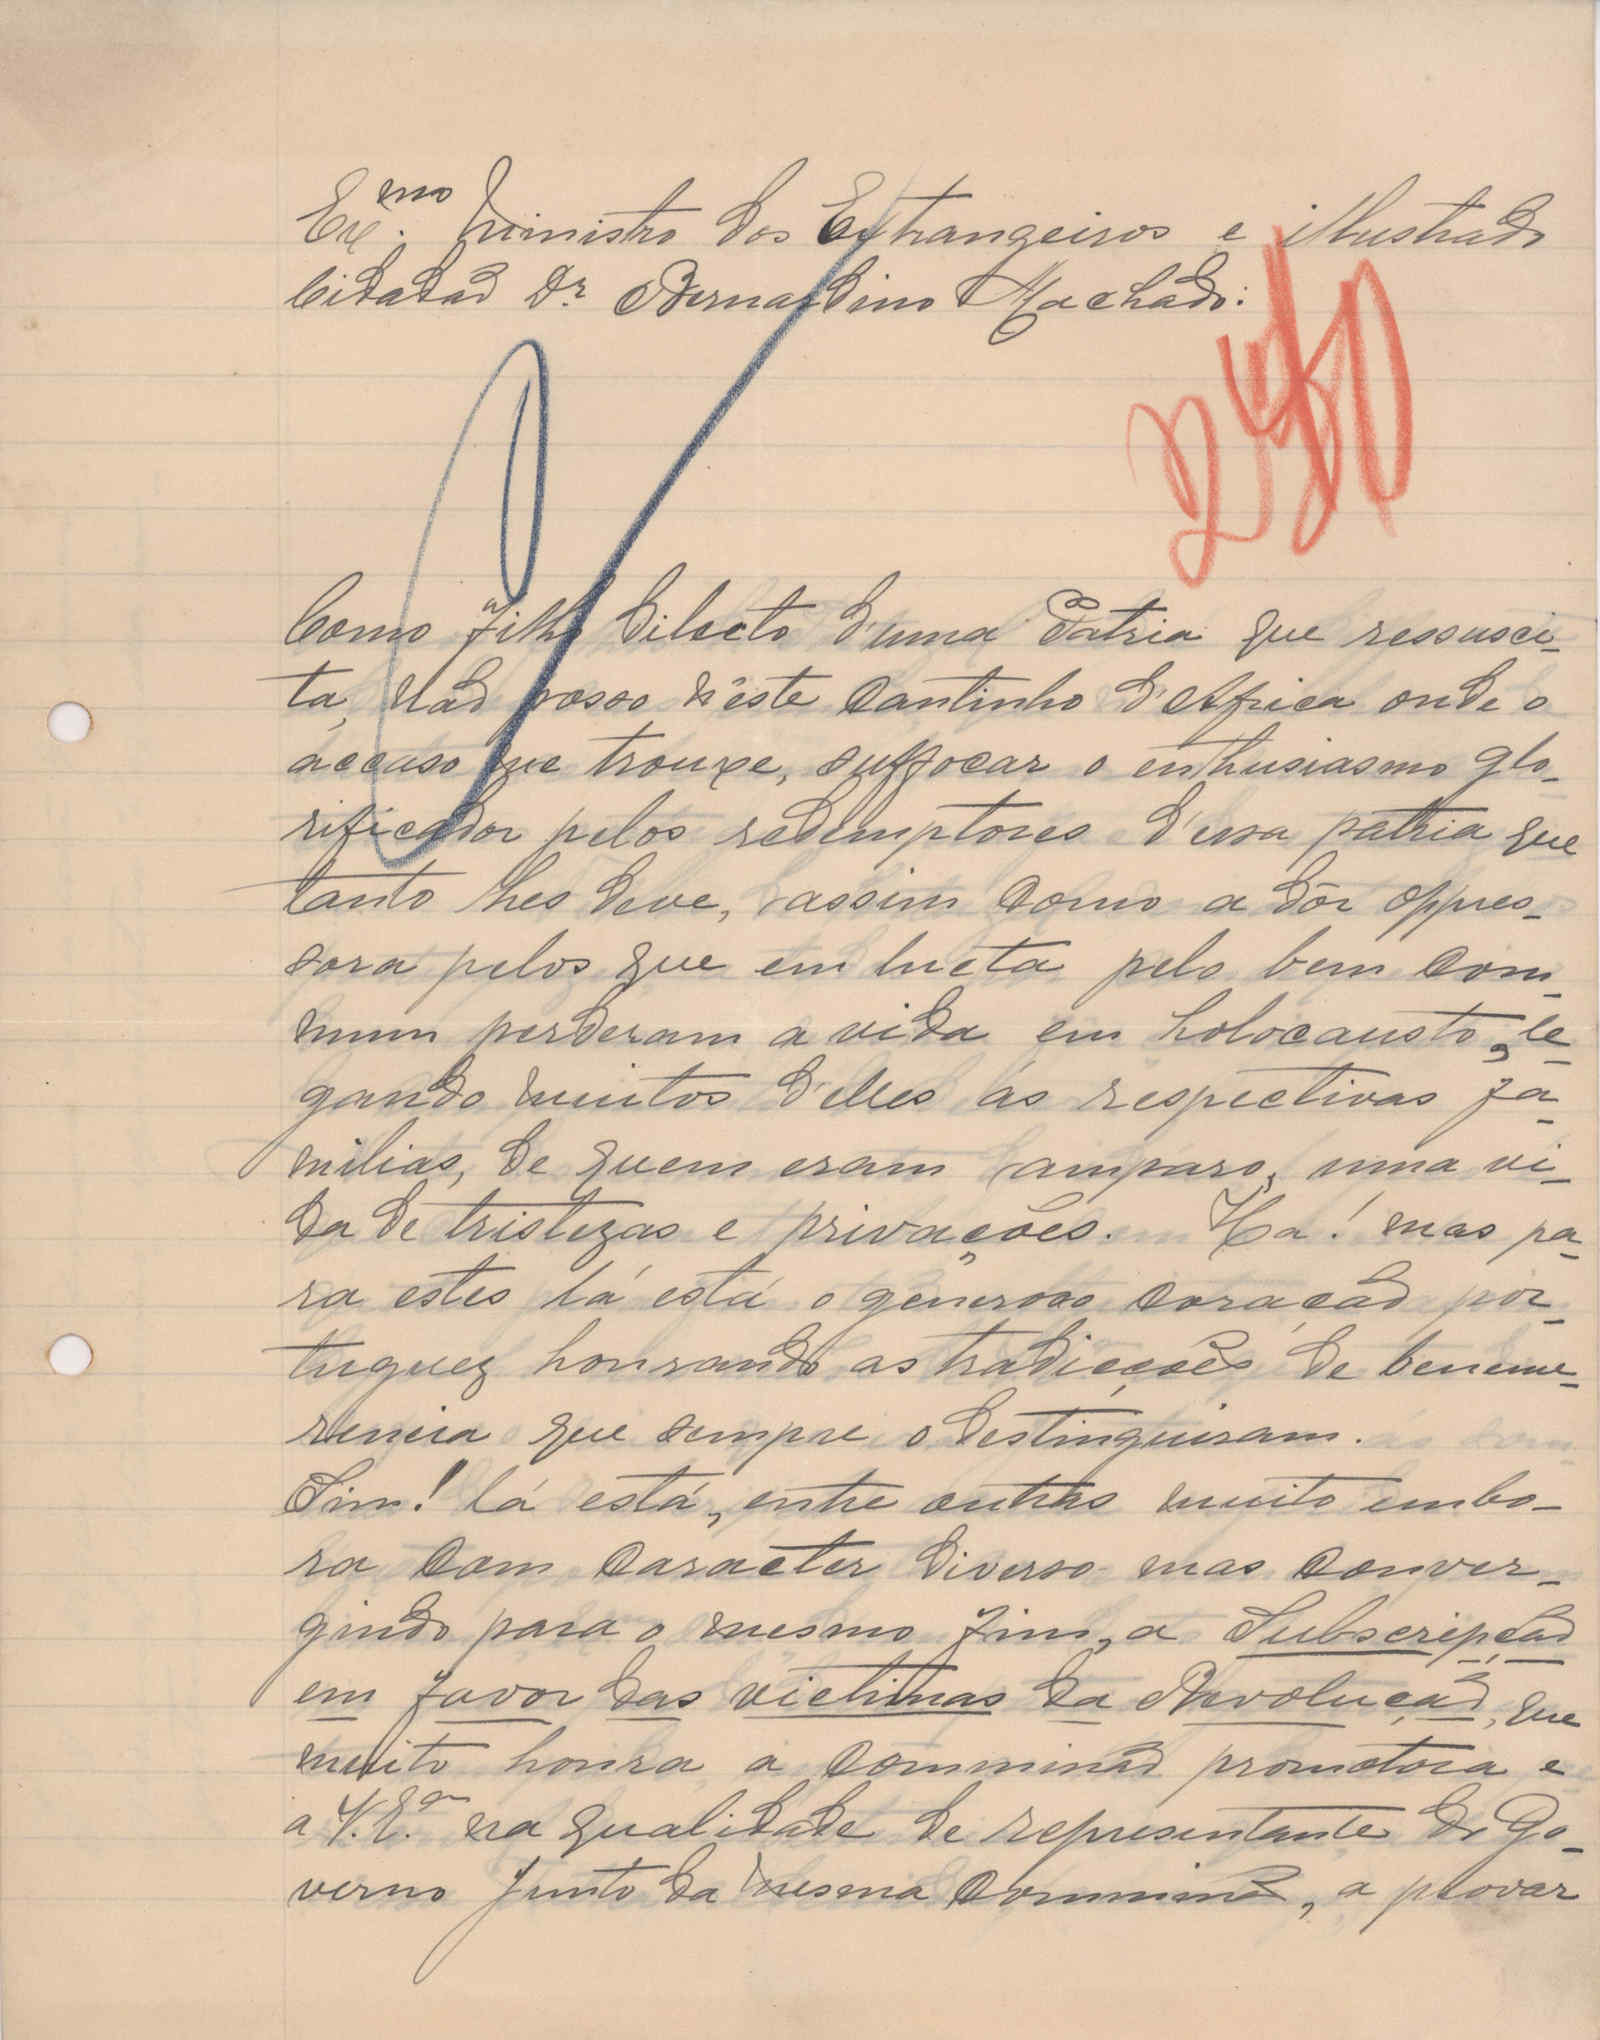 Ex.mo Ministro dos Extrangeiros e illustrado
Cidadão Dr. Bernardino Machado:
Como filho dilecto d'uma Patria que ressusci-
ta, não posso n'este cantinho d'Africa onde o
accaso me trouxe, suffocar o enthusiasmo glo-
rificador pelos redemptores d'essa patria que
tanto lhes deve, assim como a dôr oppres-
sora pelos que em lucta pelo bem com-
mum perderam a vida em holocausto, le-
gando muitos d'elles ás respectivas fa-
milias, de quem eram amparo, uma vi-
da de tristezas e privações. Ha! mas pa-
ra estes lá está o generoso coração por-
tuguez honrando as tradicções de beneme-
rencia que sempre o destinguiram.
Sim! lá está, entre outras muito embo-
ra com caracter diverso mas conver-
gindo para o mesmo fim, a Subscripção
em favor das victimas da Revolução, que
muito honra a commissão promotora e
a V. E.a na qualidade de representante do Go-
verno junto da mesma commissão, a provar